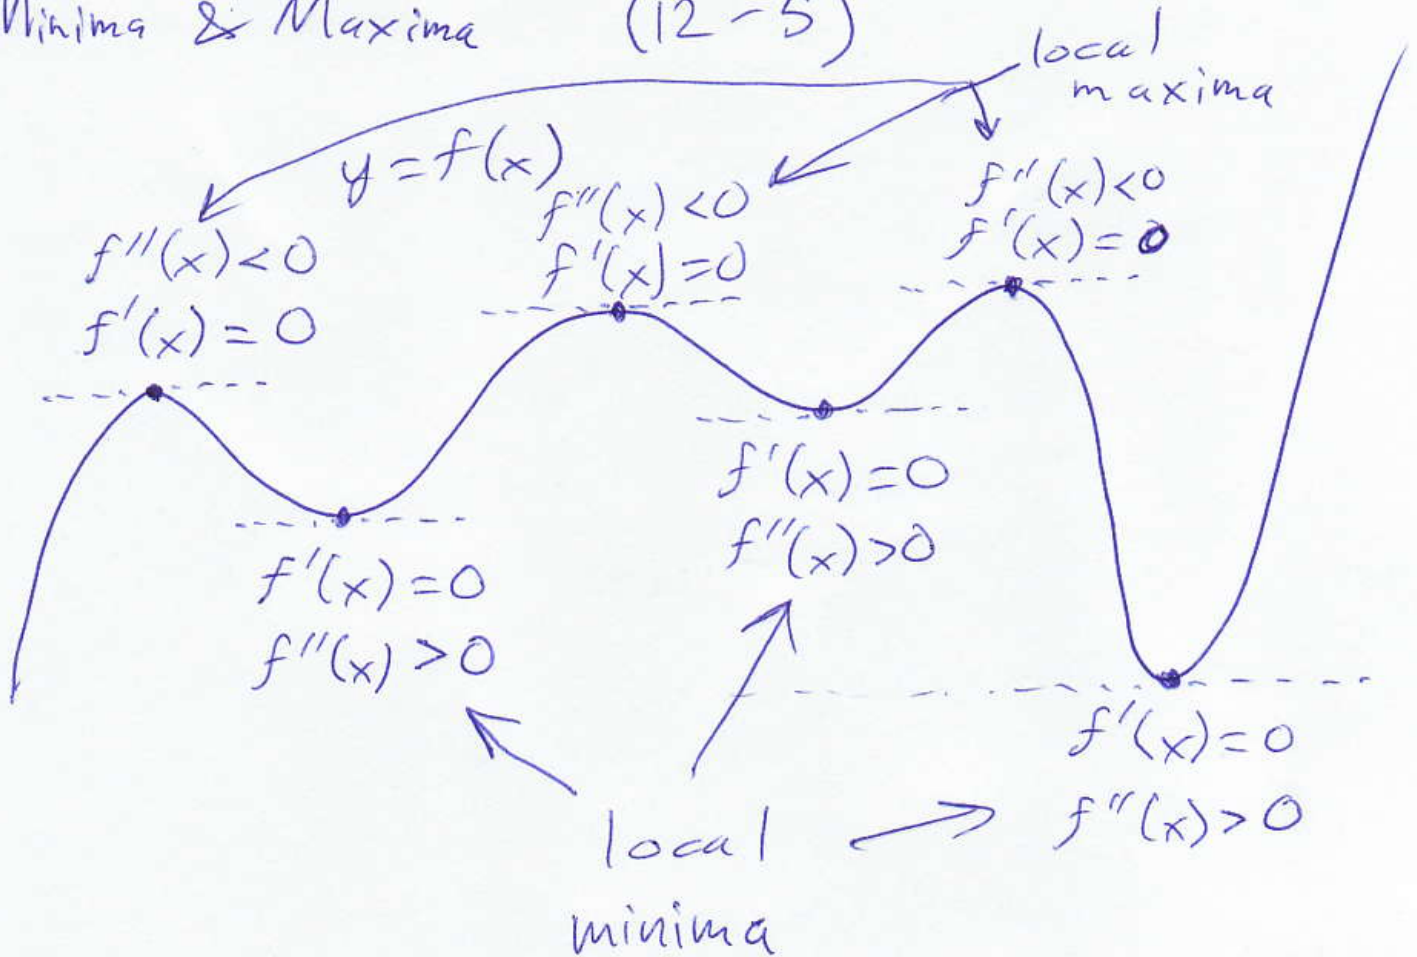 Minima & Maxima (12-5)
local
maxima
y = f(x)
f''(x) < 0
f'(x) = 0
f''(x) < 0
f'(x) = 0
f''(x) < 0
f'(x) = 0
f'(x) = 0
f''(x) > 0
f'(x) = 0
f''(x) > 0
f'(x) = 0
f''(x) > 0
local
minima